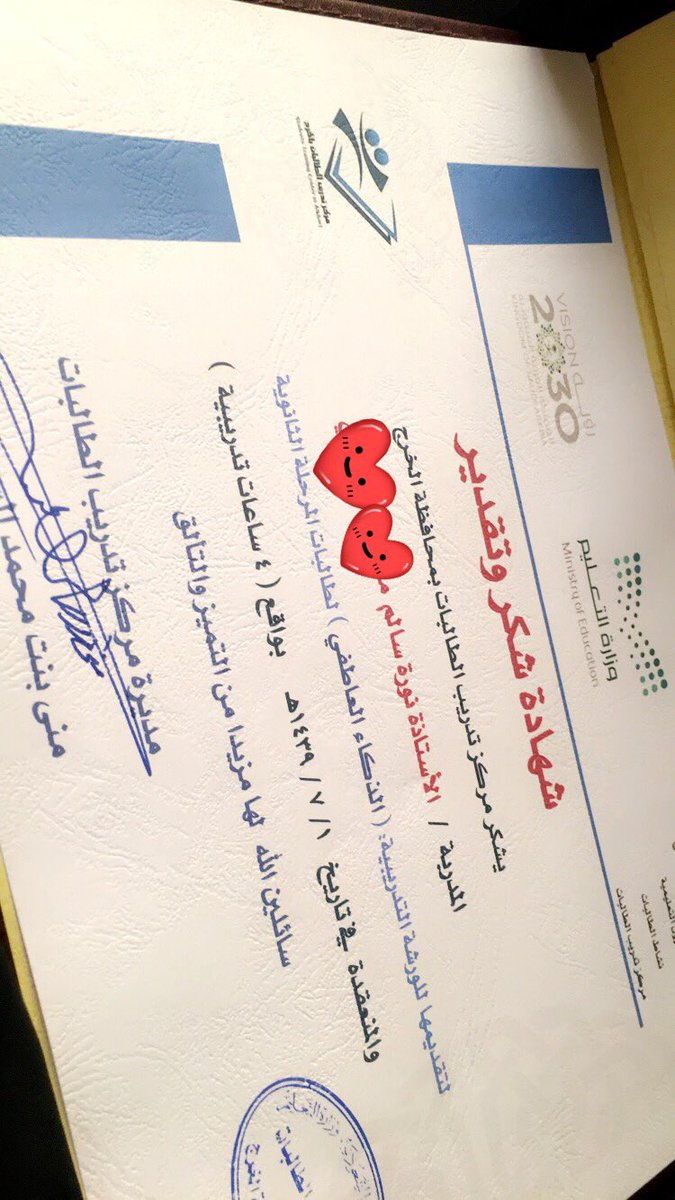 نشاط الطالبات
مركز تدريب الطالبات
وزارة التعليم
Ministry of Education
رؤية VISION
2030
المملكة العربية السعودية
KINGDOM OF SAUDI ARABIA
مركز تدريب الطالبات بالخرج
شهادة شكر وتقدير
يشكر مركز تدريب الطالبات بمحافظة الخرج
المدربة / الأستاذة نورة سالم
لتقديمها للورشة التدريبية: ( الذكاء العاطفي ) لطالبات المرحلة الثانوية
والمنعقدة في تاريخ ١ / ٧ / ١٤٣٩هـ بواقع ( ٤ ساعات تدريبية )
سائلين الله لها مزيدا من التميز والتألق
مديرة مركز تدريب الطالبات
منى بنت محمد